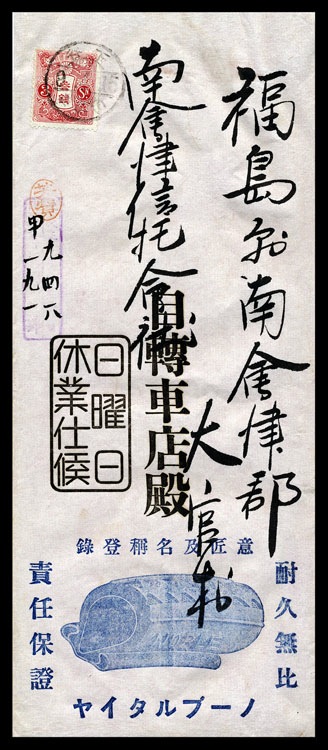 福島縣南會津郡
大宮村
南會津信託会社
自轉車店殿
日曜日
休業仕候
甲一九一
九四六
意匠及名稱登錄
耐久無比
責任保證
ノーブルタイヤ